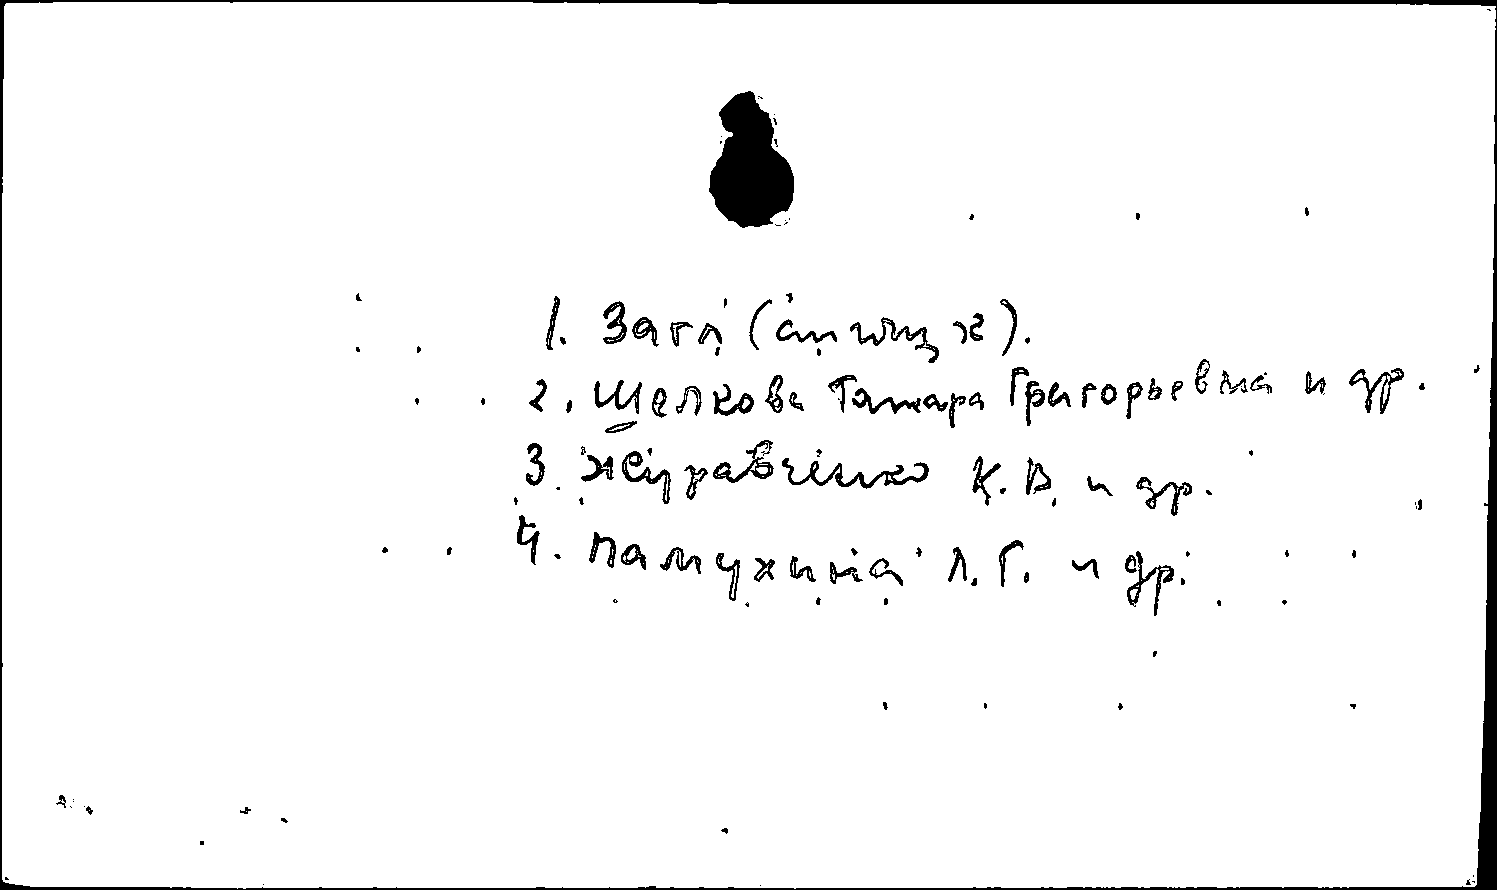 1. Загл. (
2. Щелкова Тамара Григорьевна и др.
3. Журавченко К. В. и др.
4. Памухина Л. Г. и др.